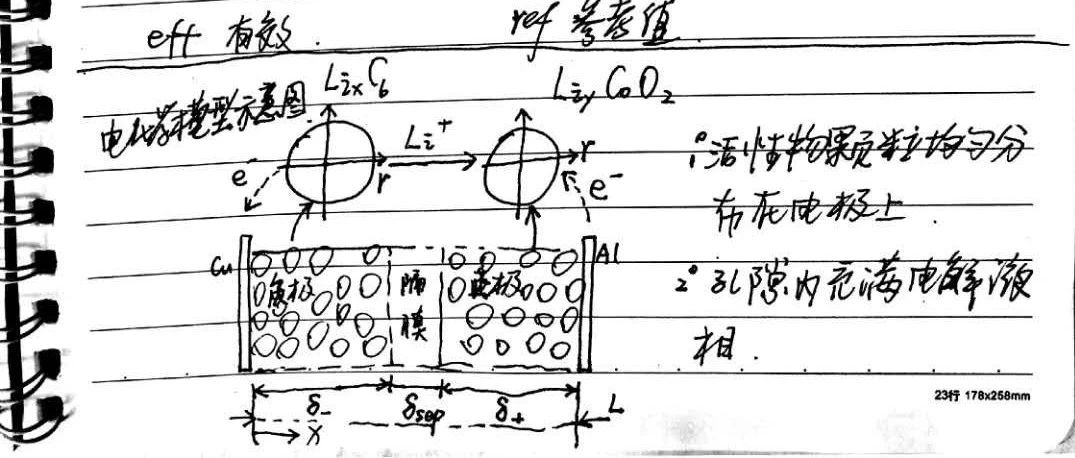 eff 有效. ref 参考值
电化学模型示意图
LixC6 LiyCoO2
Li+
e- r r e-
1° 活性物颗粒均匀分
布在电极上.
Cu 负极 隔膜 正极 Al
2° 孔隙内充满电解液
相.
δ- δsep δ+ L
x
23行 178x258mm